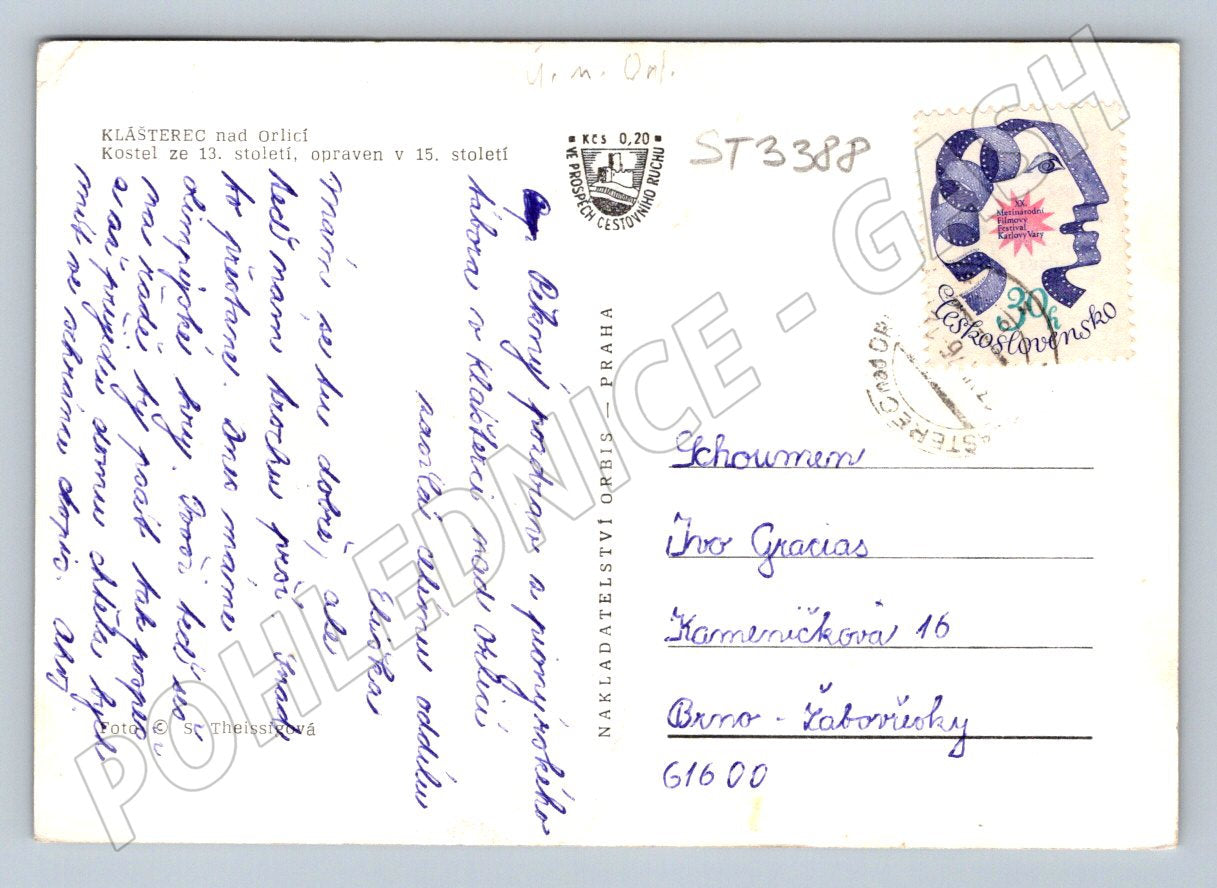 Ú. n. Orl.
KLÁŠTEREC nad Orlicí
Kostel ze 13. století, opraven v 15. století
Kčs 0,20
VE PROSPĚCH CESTOVNÍHO RUCHU
ST3388
XX.
Mezinárodní
Filmový
Festival
Karlovy Vary
30h
Československo
ŠTEREC nad OR
Pěkný pozdrav s pionýrského
tábora v Klášterci nad Orlicí
zasílá celému oddílu
Eliška
Mám se tu dobře, ale
teď nám trochu prší. Snad
to přestane. Dnes máme
olimpijské hry. Tvoř teď se
mnou raději ty psát tak pospěš
a až přijedu domu chtěla bych
mít ve schránu dopis. Ahoj
NAKLADATELSTVÍ ORBIS — PRAHA
Schoumen
Ivo Gracias
Kameníčková 16
Brno - Žabovřesky
616 00
Foto © S. Theissigová
POHLEDNICE - GASH